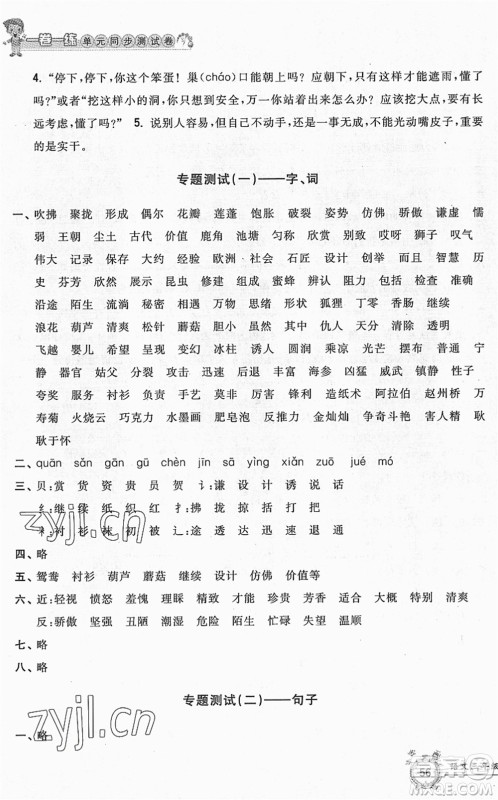 一卷一练 单元同步测试卷
4. “停下,停下,你这个笨蛋!巢(cháo)口能朝上吗?应朝下,这样才能遮雨,懂了
吗?”或者“挖这样小的洞,你只想到自己,万一你站着出来怎么办?应该挖大点,要有长
远考虑,懂了吗?” 5. 说别人容易,但自己不动手,一事无成,不能光动嘴皮子,重要的
是实干。
专题测试(一)——字、词
一、吹拂 聚拢 形成 偶尔 花瓣 莲蓬 饱胀 破裂 姿势 仿佛 骄傲 谦虚 懦
弱 王朝 尘土 古代 价值 鹿角 池塘 匀称 欣赏 别致 不禁 哎呀 狮子 叹气
伟大 记录 保存 大约 经验 欧洲 社会 石匠 设计 创举 而且 智慧 历
史 芬芳 欣然 展示 昆虫 修建 组成 内部 能够 粗糙 长途 几乎 准确
沿途 陌生 流淌 试验 证明 秘密 相遇 透明 形状 狐狸 丁零 香肠 继续
浪花 葫芦 清爽 松针 蘑菇 胆小 冰冷 双臂 仍然 杰出 拼命 清澈 光明
飞越 婴儿 希望 呈现 调皮 敢于 蜘蛛 圆润 乘凉 光芒 摆布 普通 宁
静 器官 姑父 分裂 投机取巧 刺猬 凶猛 威武 镇静 性子
夸奖 服务 衬衫 负责 手艺 莫非 厉害 锋利 造纸术 阿拉伯 赵州桥 万
寿菊 火烧云 巧克力 水墨画 肥皂泡 反推力 金灿灿 争奇斗艳 害人精 耿
耿于怀
二、quān sǎn gān gū chèn jīn sā yìng xiàn zuō jué mó
三、贝:赏 货 资 贵 员 贺 讠:谦 设 计 诱 说 话
纟:继 续 纸 织 红 扌:拂 拢 掠 括 打
衤:衬 衫 袜 初 被 辶:途 透 达 迅 速 通
四、略
五、鸳鸯 衬衫 葫芦 蘑菇 继续 设计 仿佛 价值等
六、近:轻视 愤怒 羞愧 理睬 精致 才能 珍贵 芳香 大概 特别 清爽
反:骄傲 坚强 丑陋 正常 潮湿 污染 陌生 忙碌 失望 温顺
七、略
八、略
专题测试(二)——句子
一、略
56